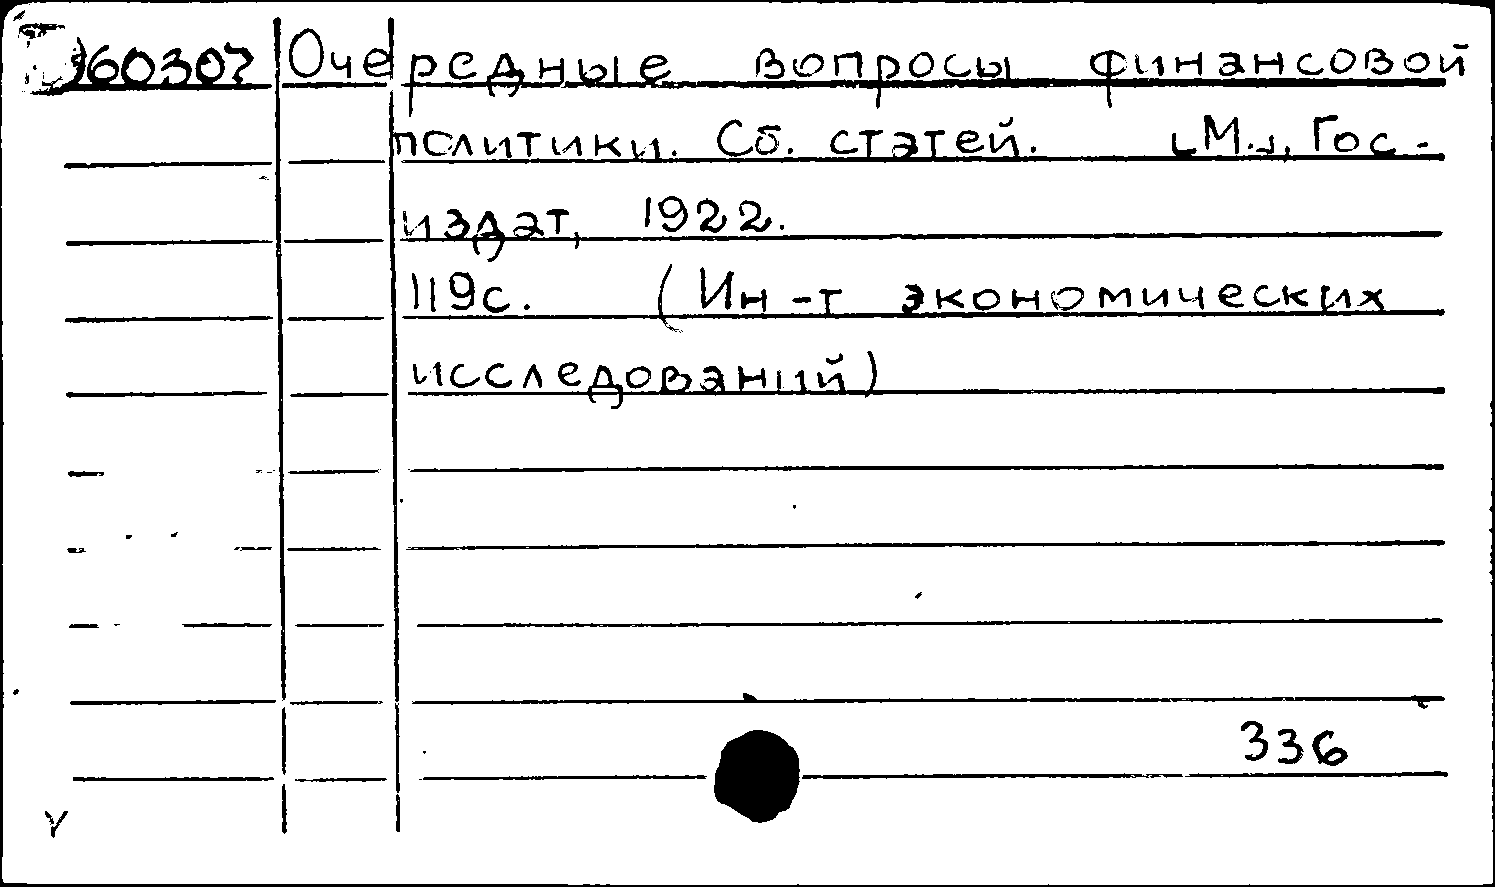 Очередные вопросы финансовой
политики. Сб. статей. [М.], Гос-
издат, 1922.
119с. (Ин-т экономических
исследований)
336